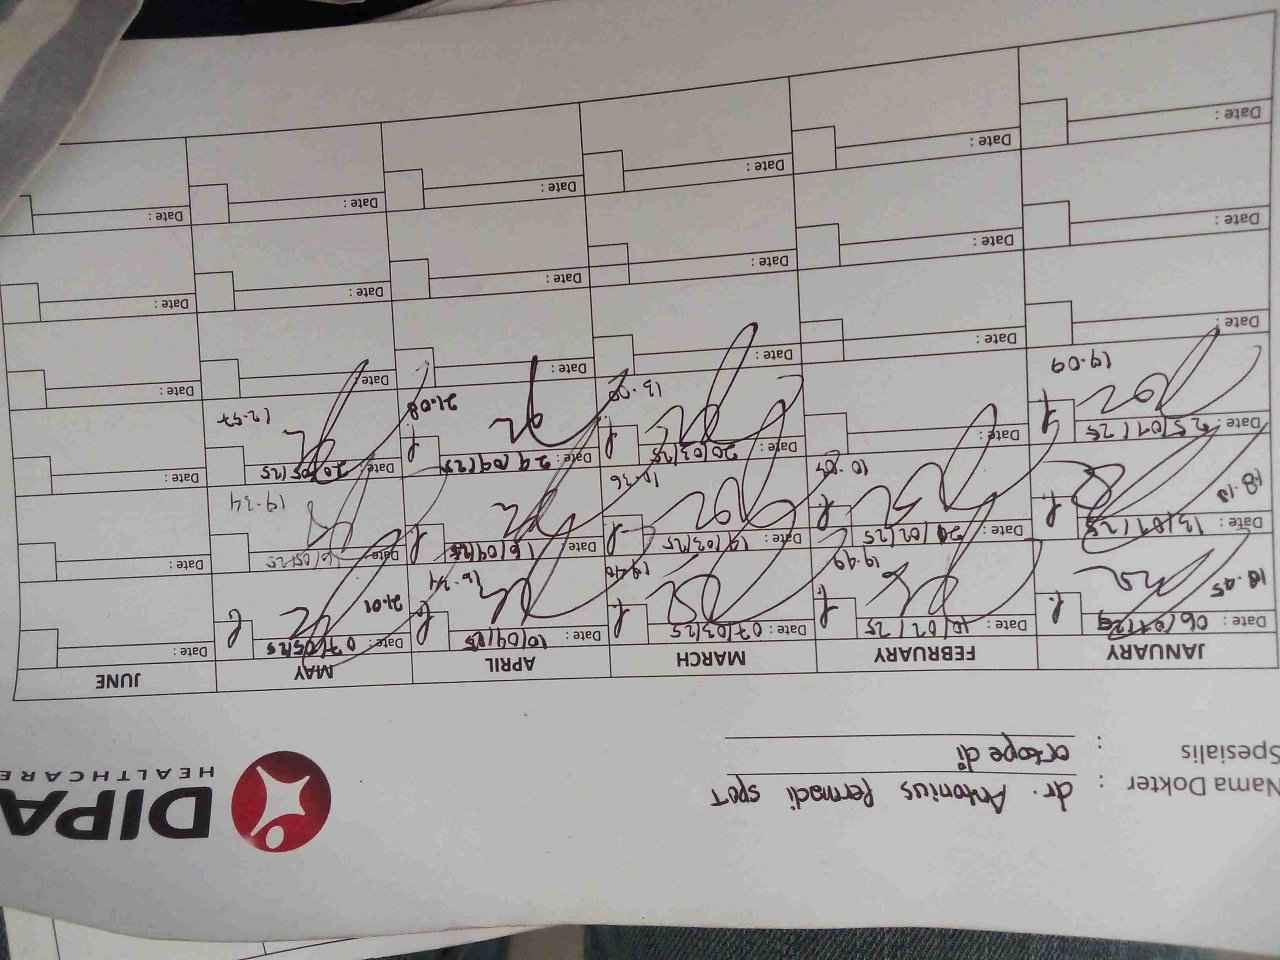 DIPA
HEALTHCARE
Nama Dokter : dr. Antonius Permadi SpOT
Spesialis : ortopedi
JANUARY FEBRUARY MARCH APRIL MAY JUNE
Date: 06/01/25 Date: 10/02/25 Date: 07/03/25 Date: 10/04/25 Date: 07/05/25 Date:
18.45 19.49 19.40 16.44 21.01
Date: 13/01/25 Date: 20/02/25 Date: 19/03/25 Date: 16/04/25 Date: 16/05/25 Date:
18.10 10.36 19.34
Date: 25/01/25 Date: Date: 20/03/25 Date: 29/04/25 Date: 20/05/25 Date:
19.09 21.08 12.57
Date: Date: Date: Date: Date: Date:
Date: Date: Date: Date: Date: Date:
Date: Date: Date: Date: Date: Date: